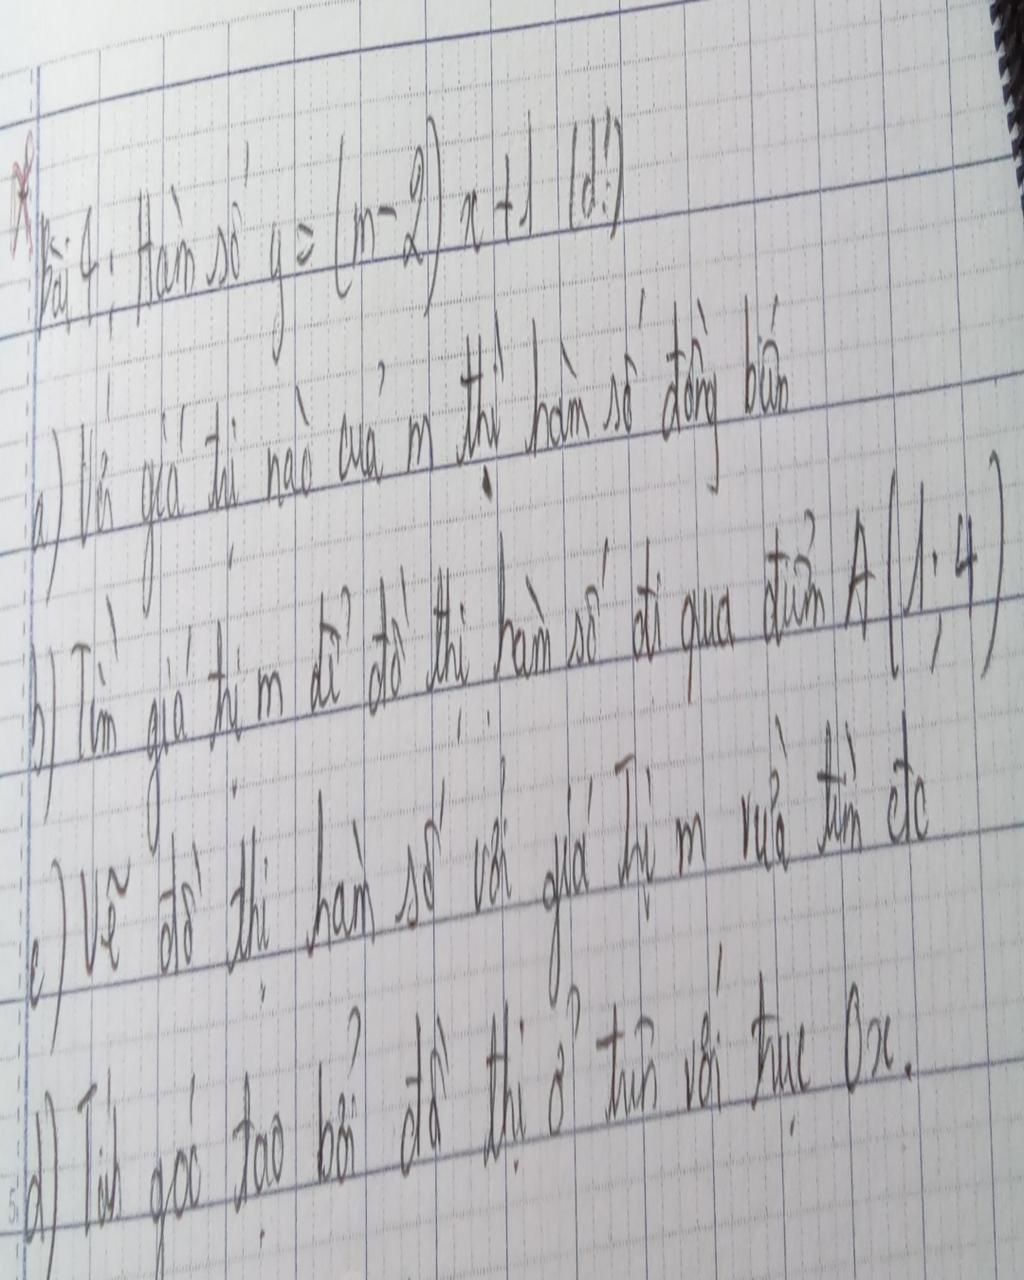 Bài 4. Hàm số y = (m - 2) x + 1 (d!)
a) Với giá trị nào của m thị hàm số đồng biến
b) Tìm giá trị m để đồ thị hàm số đi qua điểm A (1; 4)
c) Vẽ đồ thị hàm số với giá Trị m vừa tìm đc
d) Tính góc tạo bởi đồ thị ở trên với trục Ox.